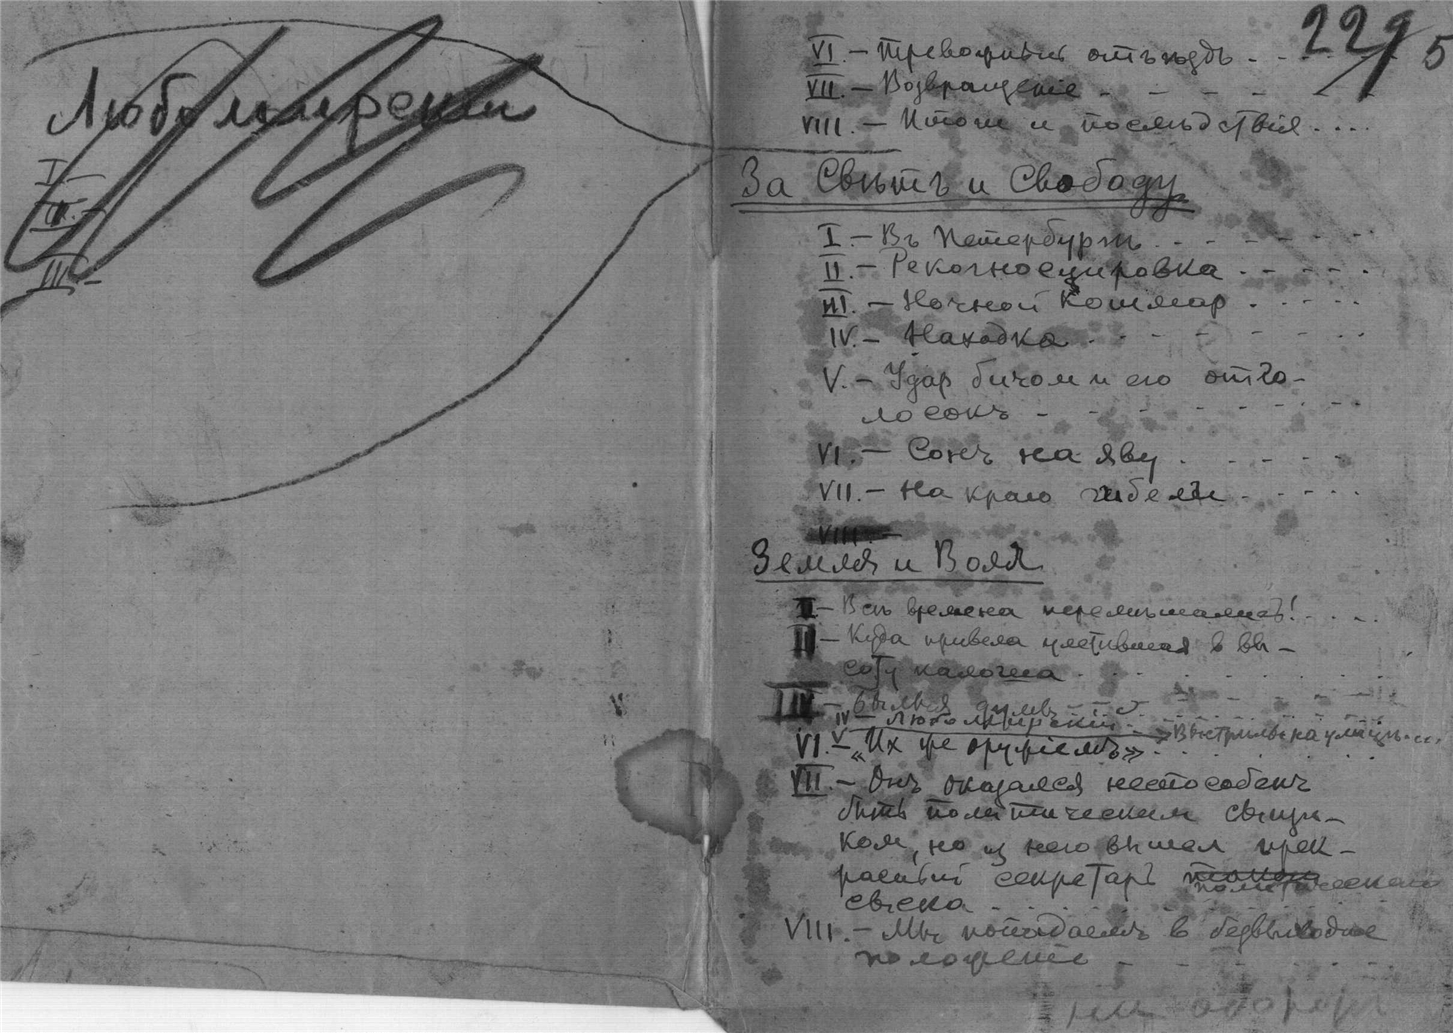 Любомирский
I
II.-
III.-
229 5
VI.- Тревожный отъѣздъ . - -
VII.- Возвращеніе - - - - -
VIII.- Итоги и послѣдствія . . . .
За Свѣтъ и Свободу
I.- Въ Петербургъ . - - - - -
II.- Рекогносцировка . - - - .
III.- Ночной Кошмар . - - - -
IV.- Находка - - - - - - -
V.- Удар бичом и его отго-
лосокъ - - - - - - - -
VI.- Сонъ на яву . - - - -
VII.- На краю гибели - - - -
VIII.-
Земля и Воля
I- Всѣ времена перемѣшались! . . . .
II- Куда привела улетѣвшая в вы-
соту калоша . . . . . . . .
III- Былыя думы - - - -
IV- Любомирскій . - V Выстрѣлы на улицѣ . . . .
VI.- «Их же оружіемъ» . . . .
VII.- Онъ оказался неспособенъ
быть политическим сыщи-
ком, но из него вышел прек-
расный секретарь политическаго
сыска . . . . .
VIII.- Мы попадаемъ в безвыходное
положеніе - - - - -
на оборотѣ